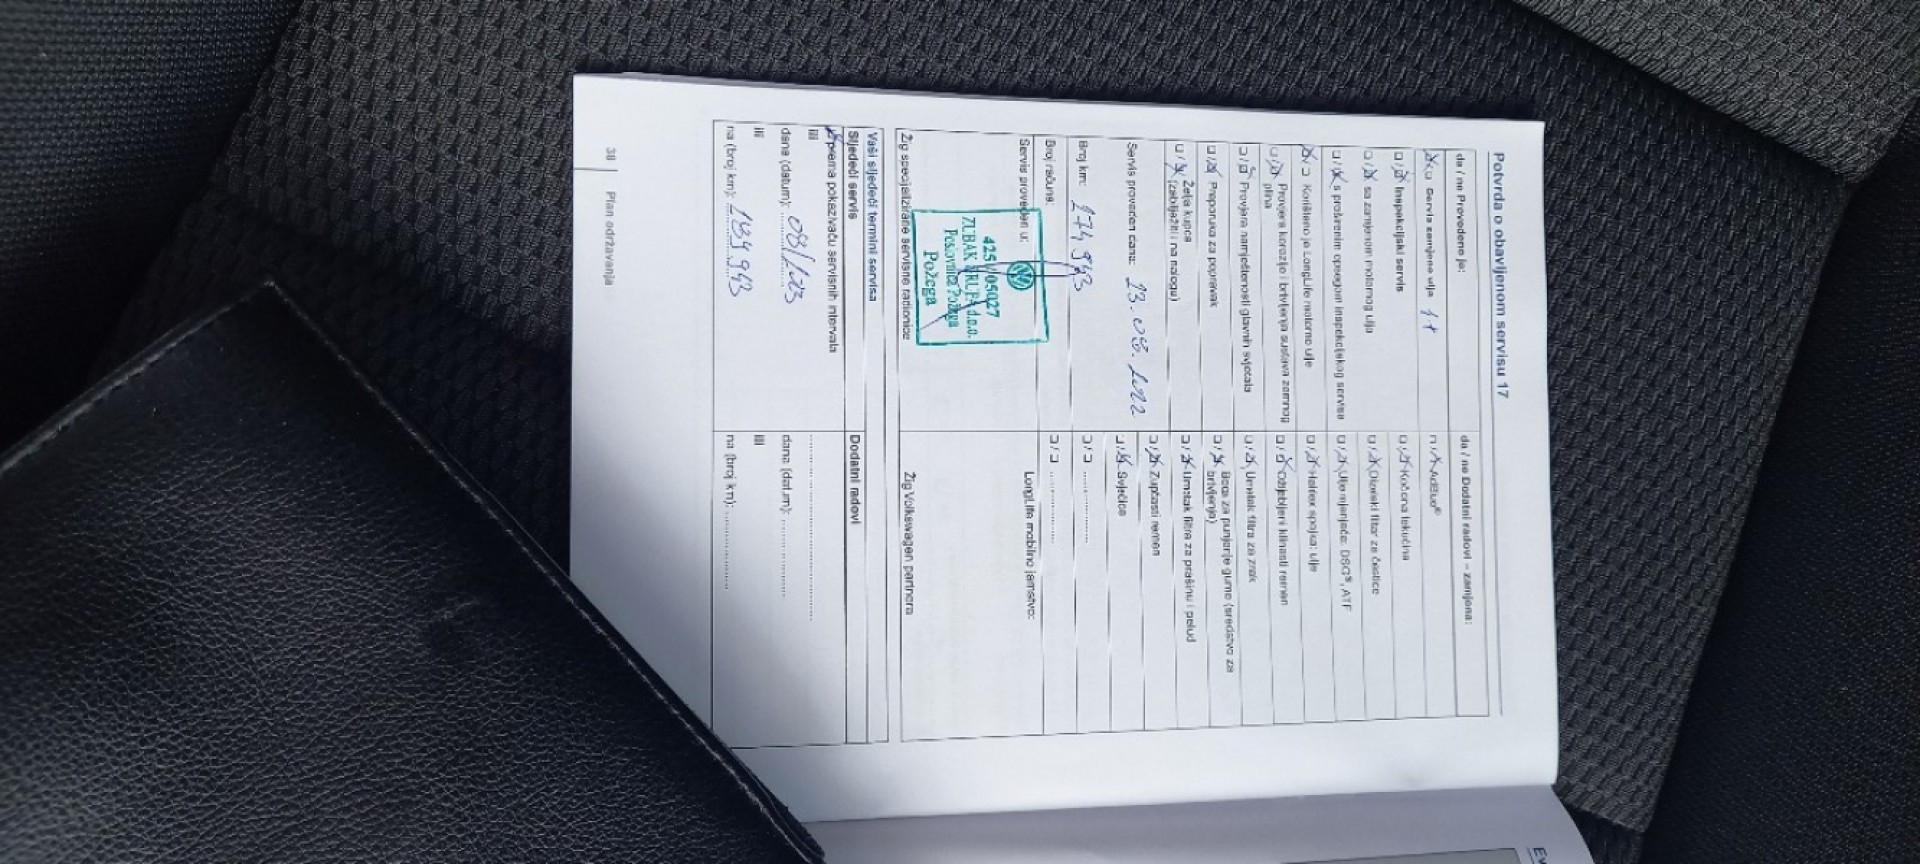 Potvrda o obavljenom servisu 17
da / ne Provedeno je:
Servis zamjene ulja
Inspekcijski servis
sa zamjenom motornog ulja
s proširenim opsegom inspekcijskog servisa
Korišteno je LongLife motorno ulje
Provjera korozije i brtvljenja sustava zemnog
plina
Provjera namještenosti glavnih svjetala
Preporuka za popravak
Želja kupca
(zabilježiti na nalogu)
Servis proveden dana: 23.08.2022
Broj km: 174 943
Broj računa:
Servis proveden u:
425 /05027
ZUBAK GRUPA d.o.o.
Poslovnica Požega
Požega
Žig specijalizirane servisne radionice
da / ne Dodatni radovi – zamjena:
AdBlue®
Kočiona tekućina
Dizelski filtar za čestice
Ulje mjenjača: DSG®, ATF
Haldex spojka: ulje
Ožljebljeni klinasti remen
Umetak filtra za zrak
Boca za punjenje gume (sredstvo za
brtvljenje)
Umetak filtra za prašinu i pelud
Zupčasti remen
Svjećice
LongLife mobilno jamstvo:
Žig Volkswagen partnera
Vaši sljedeći termini servisa
Sljedeći servis
prema pokazivaču servisnih intervala
ili
dana (datum): 08/023
ili
na (broj km): 189.943
Dodatni radovi
dana (datum):
ili
na (broj km):
38 Plan održavanja